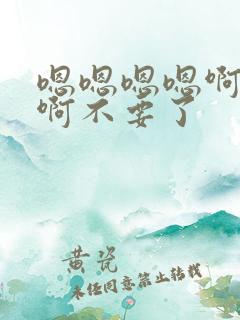 嗯嗯嗯嗯啊
啊不要了
黄瓷
未经同意禁止转载